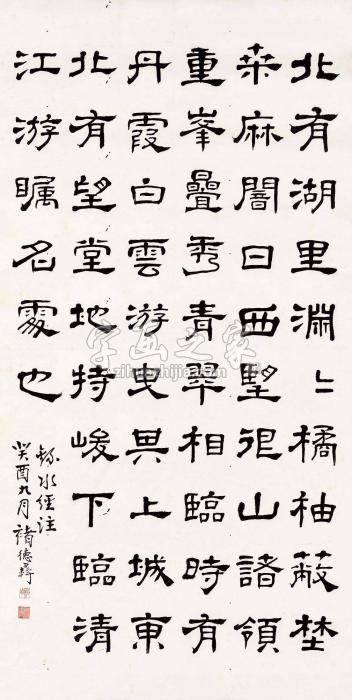 北有湖里淵〻橘柚蔽埜
桒麻闇日西望佷山諸領
重峯疊秀青翠相臨時有
丹霞白雲游曳其上城東
北有望堂地特峻下臨清
江游矚名處也
水經注
癸酉九月褚德彝
字画之家
zihuazhijia.com